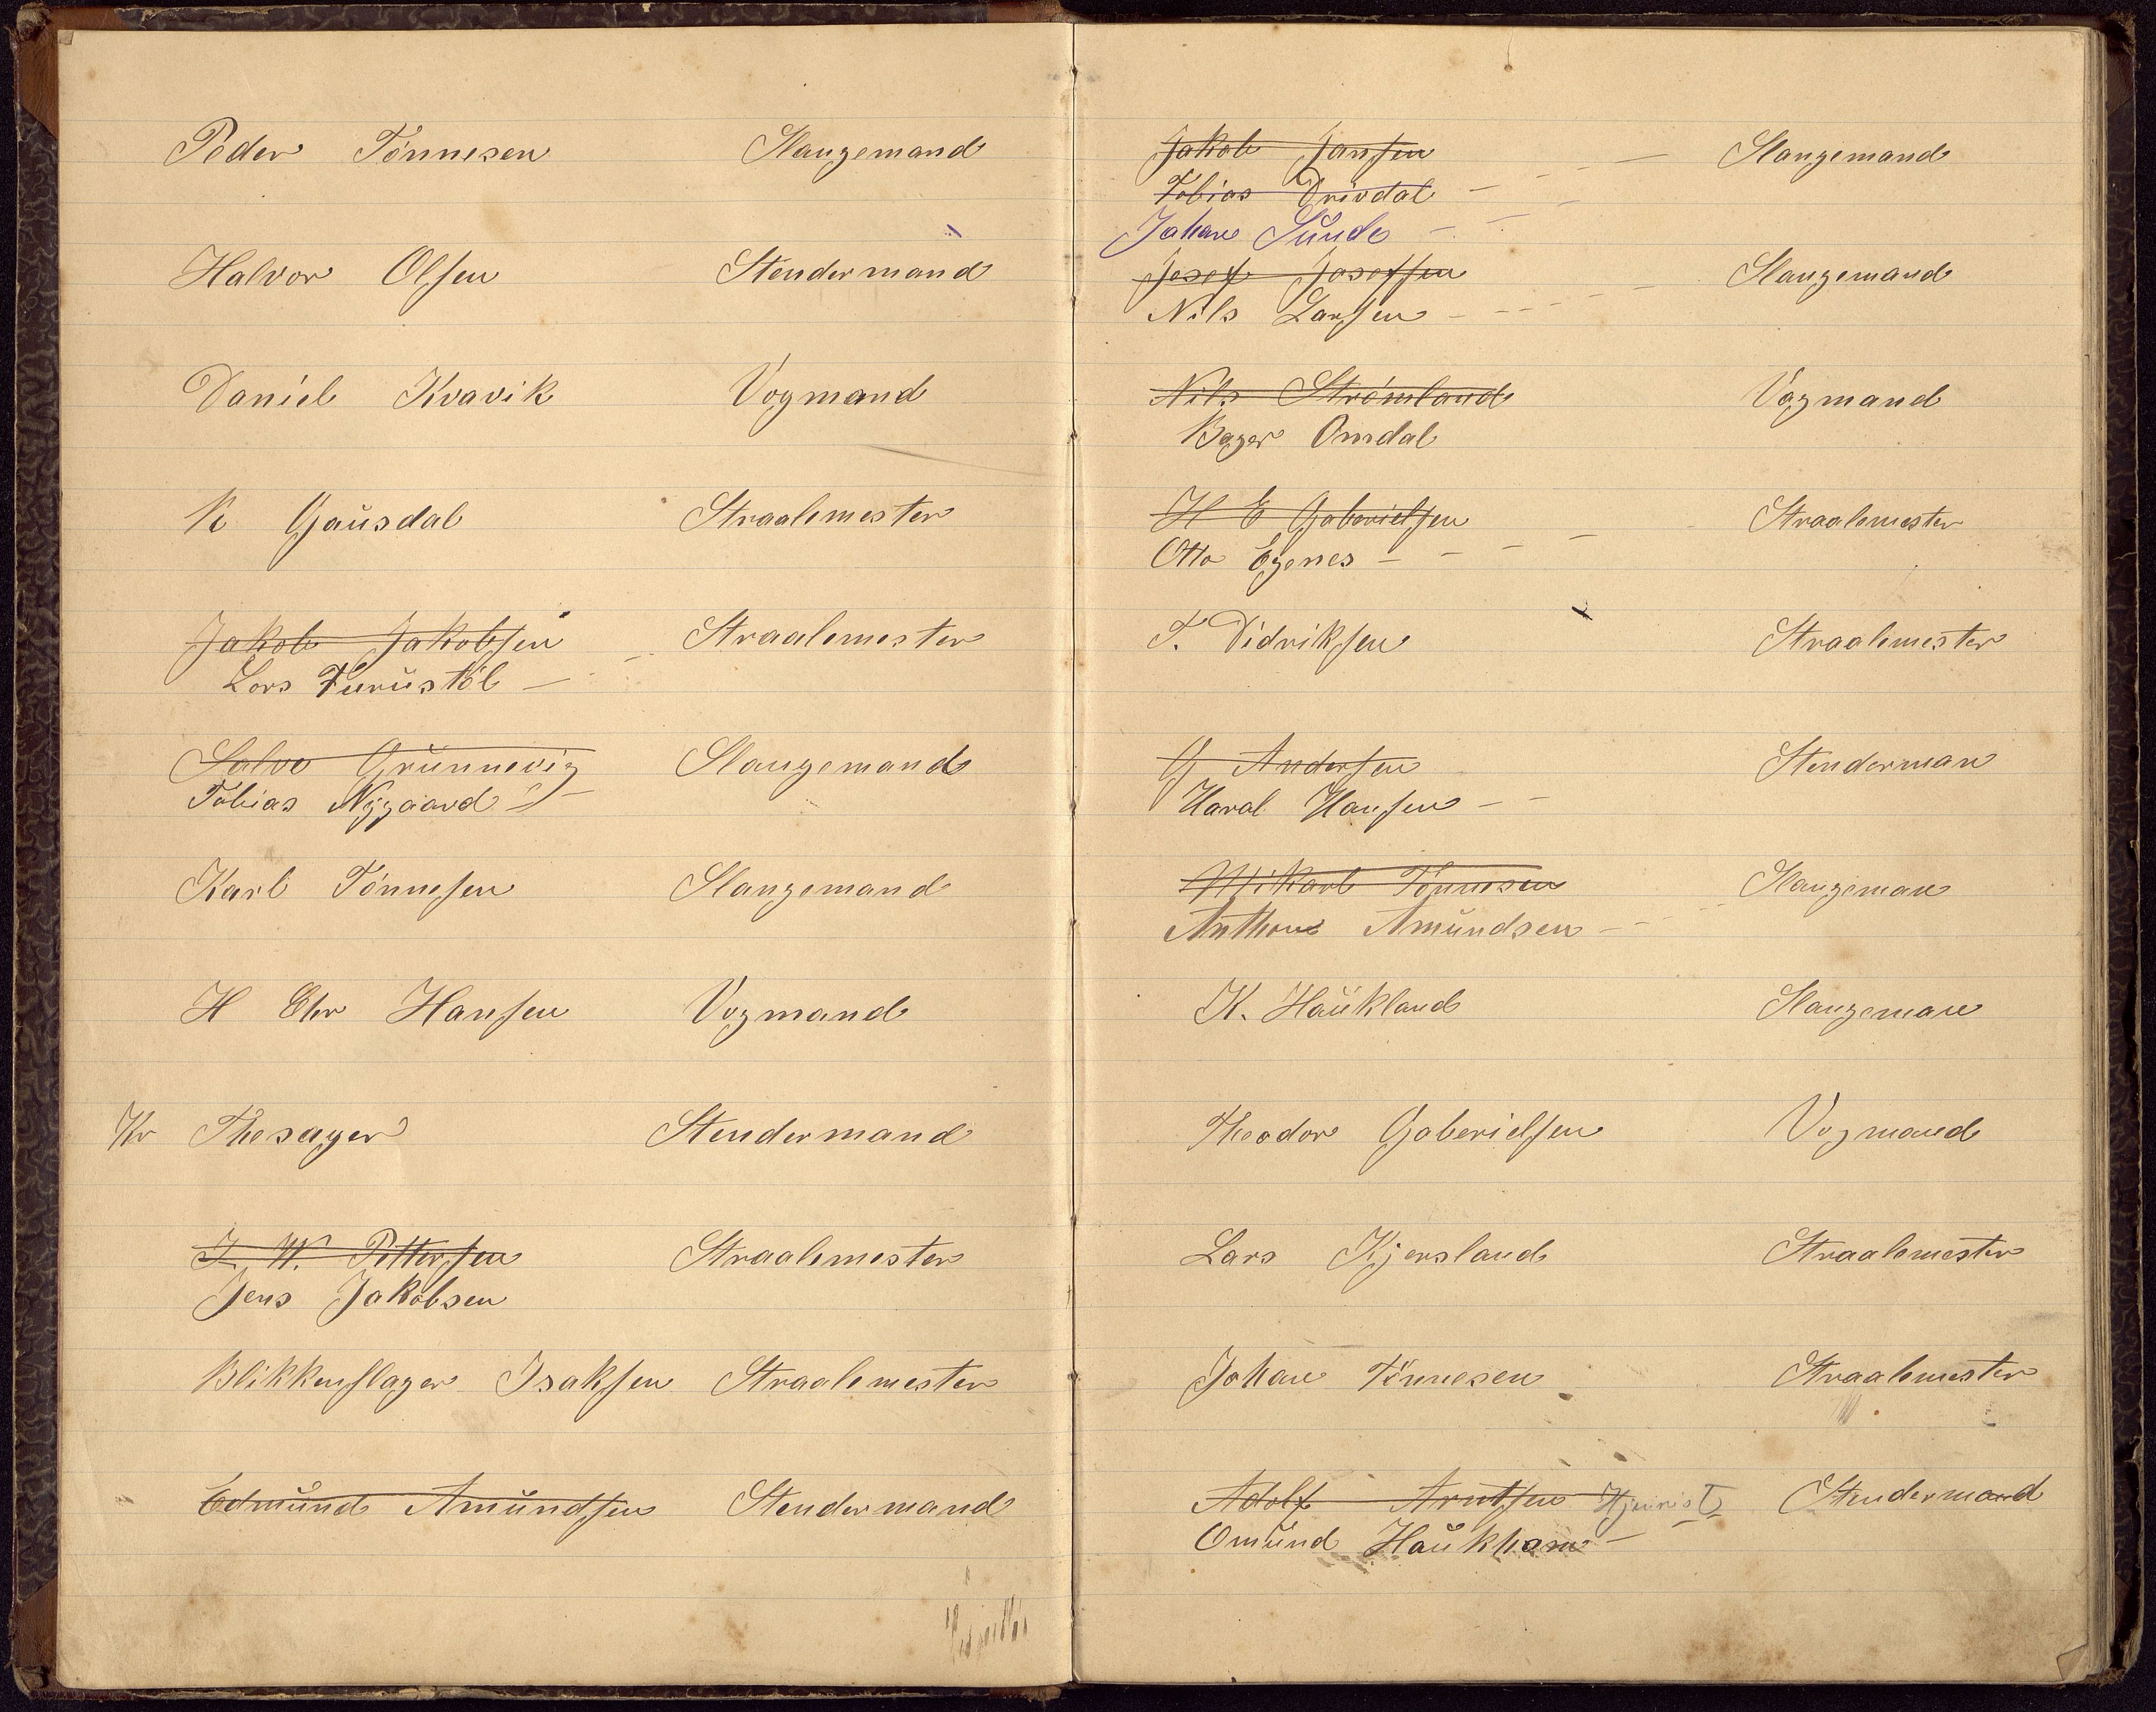 Peder Tönnesen Slangemand
Halvor Olsen Stendermand
Daniel Kvavik Vogmand
K Gausdal Straalemester
Jakob Jakobsen Straalemester
Lars Furustöl
Salve Grunnevig Slangemand
Tobias Nygaard
Karl Tönnesen Slangemand
H Chr Hansen Vogmand
Kr Thesager Stendermand
J. W. Pettersen Straalemester
Jens Jakobsen
Blikkenslager Isaksen Straalemester
Edmund Amundsen Stendermand
Jakob Jansen — Slangemand
Tobias Drivdal - -
Johan Sunde - -
Josef Josefsen Slangemand
Nils Larsen - - - - -
Nils Strömland Vogmand
Bager Omdal
H E Gaberielsen Straalemester
Otto Egenes - - - -
T. Didriksen Straalemester
G Andersen Stenderman
Haral Hansen - -
Mikael Tönnesen Slangeman
Anthon Amundsen - -
K. Haukland Slangeman
Theodor Gaberielsen Vogmand
Lars Kjersland Straalemester
Johan Tönnesen Straalemester
Adolf Arntsen Stendermand
Omund Haukhom -